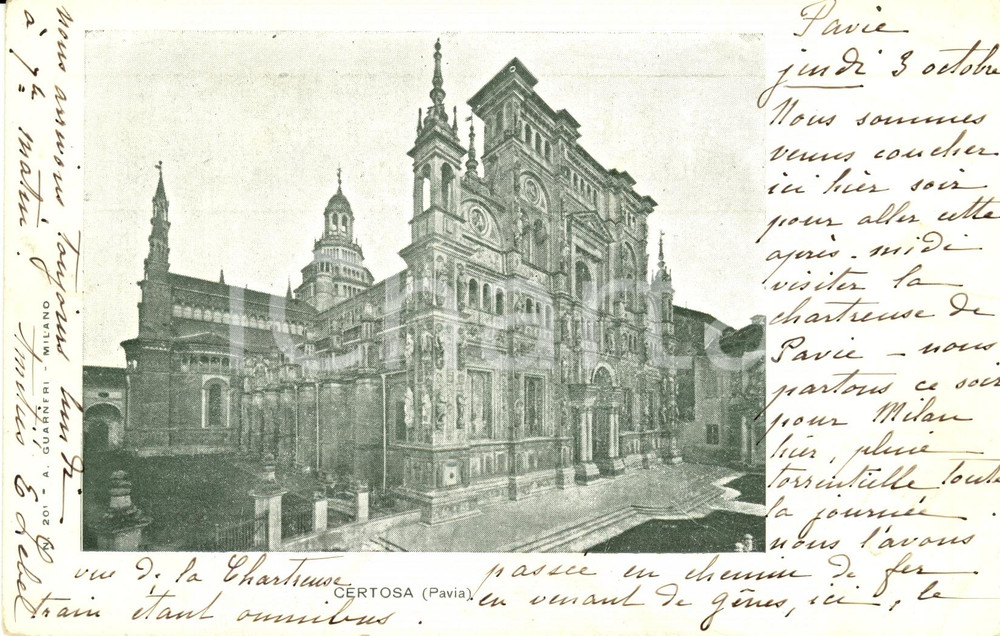 Pavie
jeudi 3 octobre
Nous sommes
venus coucher
ici hier soir
pour aller cette
après-midi
visiter la
chartreuse de
Pavie – nous
partons ce soir
pour Milan
hier, pluie
torrentielle toute
la journée
nous l'avons
passée en chemin de fer
en venant de Gênes, ici, le
train étant omnibus.
nous arrivons toujours lundi
à 7h matin. Amitiés E
vue de la Chartreuse
CERTOSA (Pavia)
201 - A. GUARNERI - MILANO